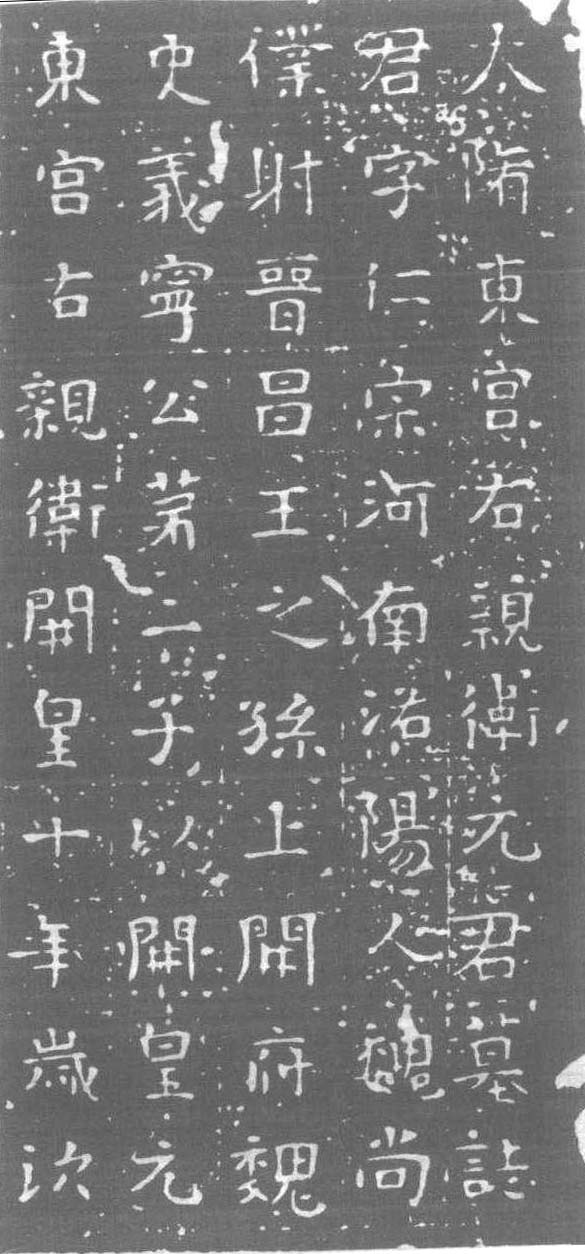 大隋東宮右親衛元君墓誌
君字仁宗河南洛陽人魏尚
僕射晉昌王之孫上開府魏
史義寧公苐二子以開皇元
東宮右親衛開皇十年歲次